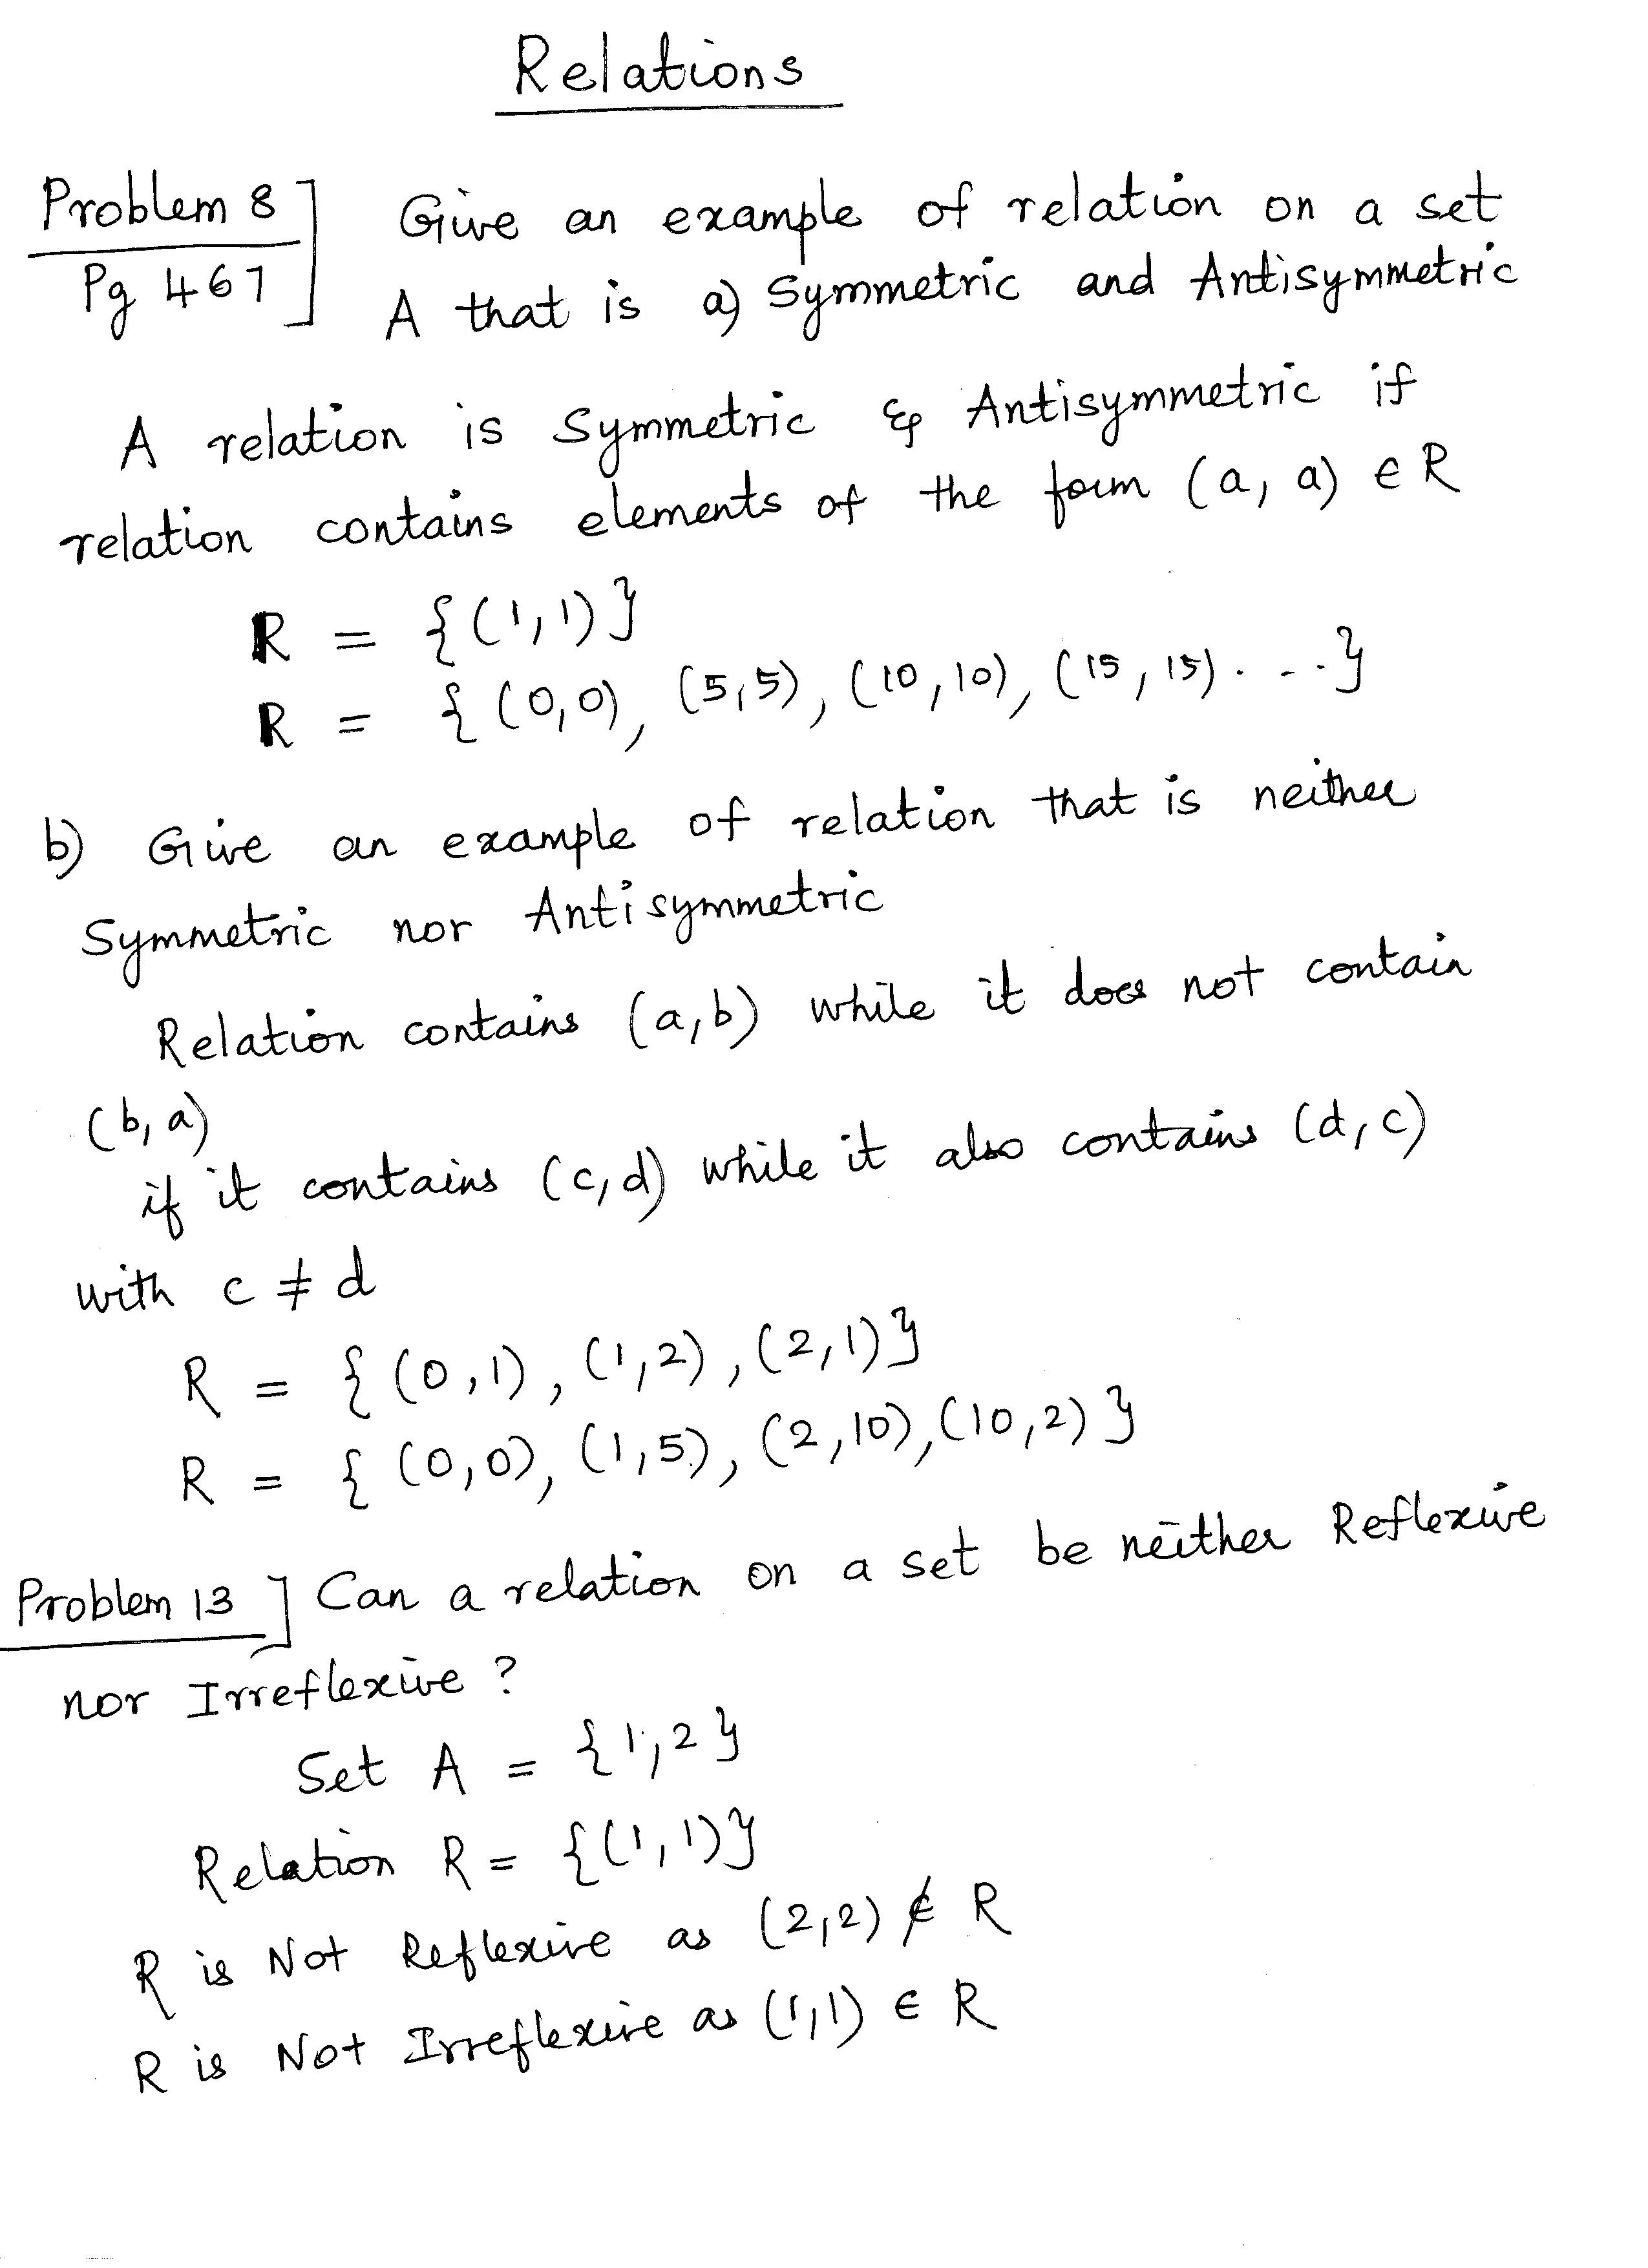 Relations
Problem 8
Pg 467
Give an example of relation on a set
A that is a) Symmetric and Antisymmetric
A relation is Symmetric & Antisymmetric if
relation contains elements of the form (a, a) ∈ R
R = {(1,1)}
R = {(0,0), (5,5), (10,10), (15,15)....}
b) Give an example of relation that is neither
Symmetric nor Antisymmetric
Relation contains (a,b) while it does not contain
(b,a)
if it contains (c,d) while it also contains (d,c)
with c ≠ d
R = {(0,1), (1,2), (2,1)}
R = {(0,0), (1,5), (2,10), (10,2)}
Problem 13] Can a relation on a set be neither Reflexive
nor Irreflexive?
Set A = {1,2}
Relation R = {(1,1)}
R is Not Reflexive as (2,2) ∉ R
R is Not Irreflexive as (1,1) ∈ R